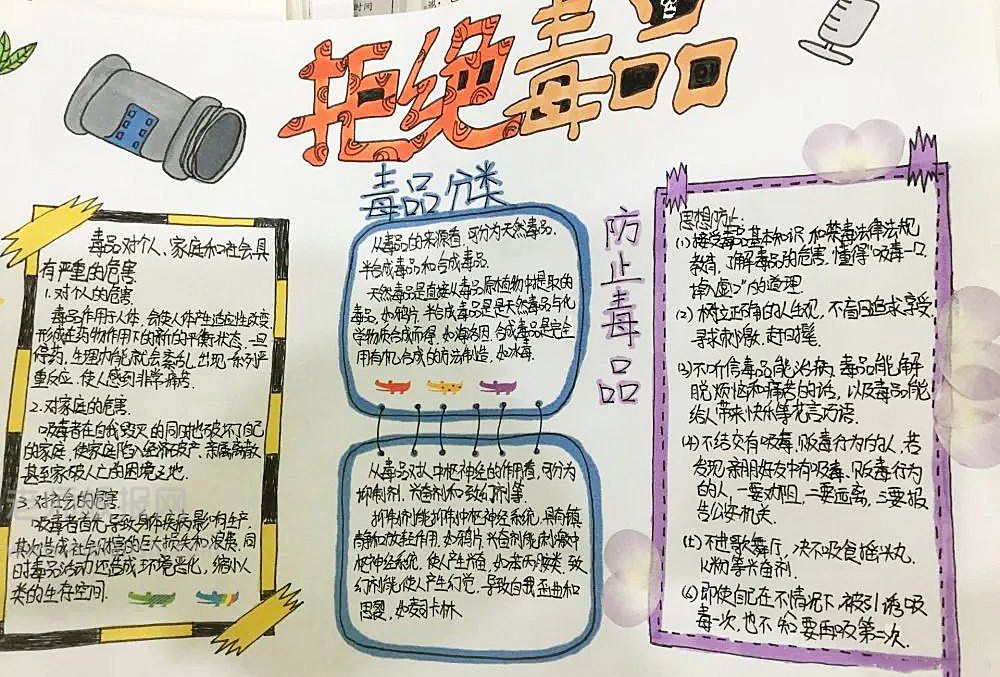 拒绝毒品
毒品对个人、家庭和社会具
有严重的危害.
1.对个人的危害.
毒品作用于人体,会使人体产生适应性改变
形成在药物作用下的新的平衡状态.一旦
停药,生理功能就会紊乱,出现一系列严
重反应,使人感到非常痛苦.
2.对家庭的危害.
吸毒者在自我毁灭的同时也破坏了自己
的家庭,使家庭陷入经济破产、亲属离散
甚至家破人亡的困境之地.
3.对社会的危害
吸毒者首先导致身体疾病影响生产,
其次造成社会财富的巨大损失和浪费.同
时毒品活动还造成环境恶化,缩小人
类的生存空间.
毒品分类
从毒品的来源看,可分为天然毒品.
半合成毒品和合成毒品.
天然毒品是直接从毒品原植物中提取的
毒品,如鸦片,半合成毒品是是天然毒品与化
学物质合成而得,如海洛因,合成毒品是完全
用有机合成的方法制造,如冰毒.
从毒品对人中枢神经的作用看,可分为
抑制剂、兴奋剂和致幻剂等.
抑制剂能抑制中枢神经系统,具有镇
静和放松作用,如鸦片,兴奋剂能刺激中
枢神经系统,使人产生兴奋,如苯丙胺类,致
幻剂能使人产生幻觉,导致自我歪曲和
思维,如麦司卡林.
防止毒品
思想防止:
(1)接受毒品基本知识和禁毒法律法规
教育,了解毒品的危害,懂得"吸毒一口,
掉入虚"的道理
(2)树立正确的人生观,不盲目追求享受,
寻求刺激,赶时髦.
(3)不听信毒品能治病,毒品能解
脱烦恼和痛苦的话,以及毒品能
给人带来快乐等花言巧语.
(4)不结交有吸毒、贩毒行为的人,若
发现亲朋好友中有吸毒、贩毒行为
的人,一要劝阻,二要远离,三要报
告公安机关.
(5)不进歌舞厅,决不吸食摇头丸、
K粉等兴奋剂.
(6)即使自己在不情况下,被引诱吸
毒一次,也不知要再吸第二次.